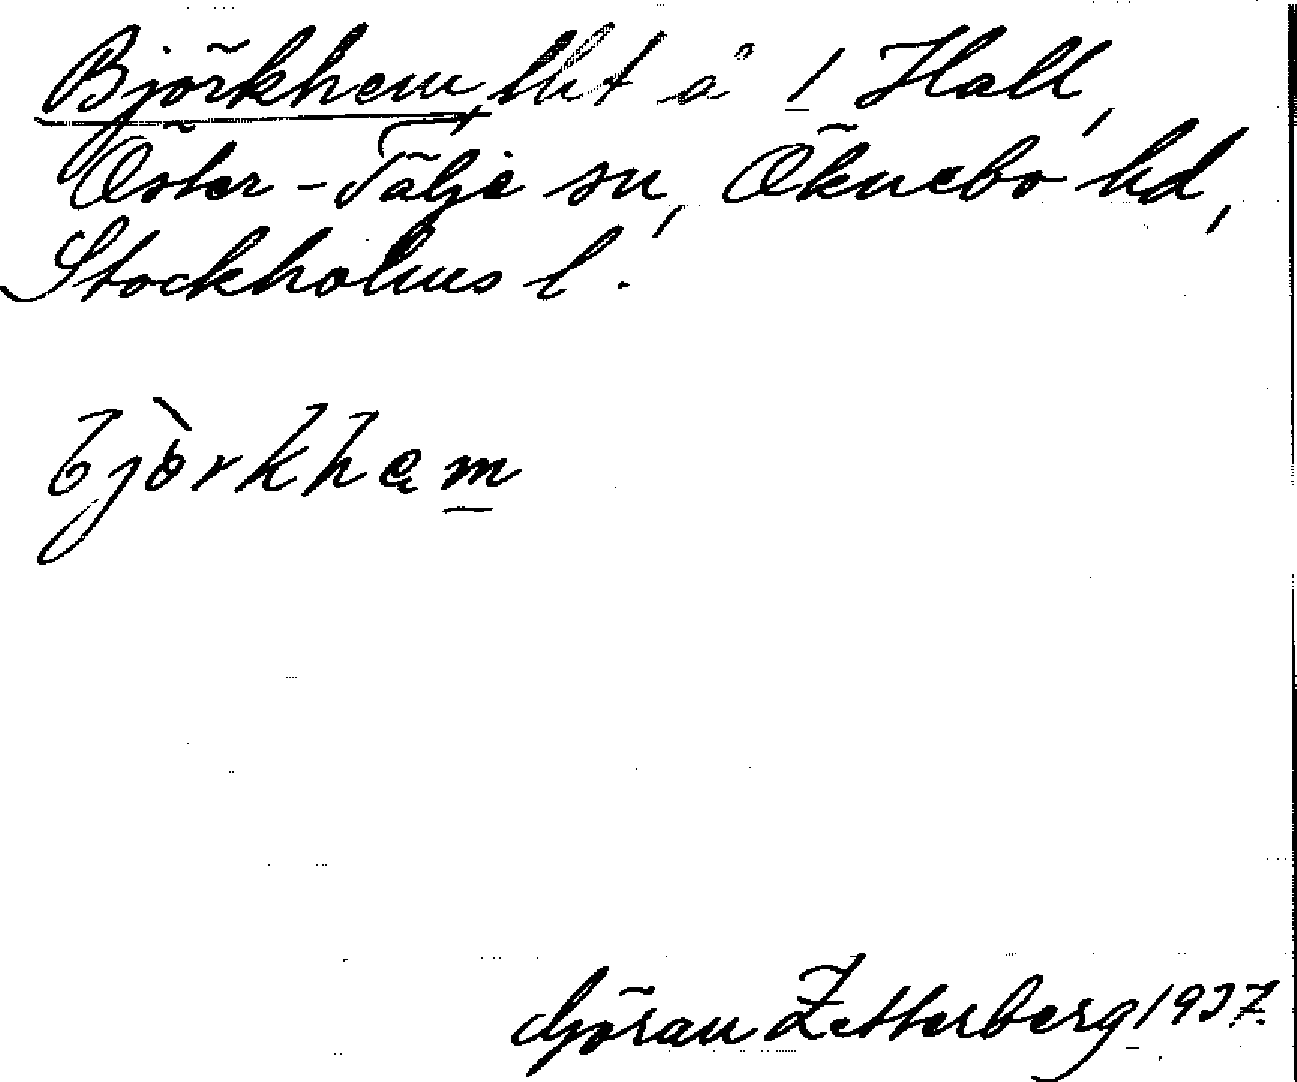 Björkhem, lht å 1 Hall,
Öster-Tälje sn, Öknebo hd,
Stockholms l.
bjö̀rkhem
Göran Zetterberg 1937.